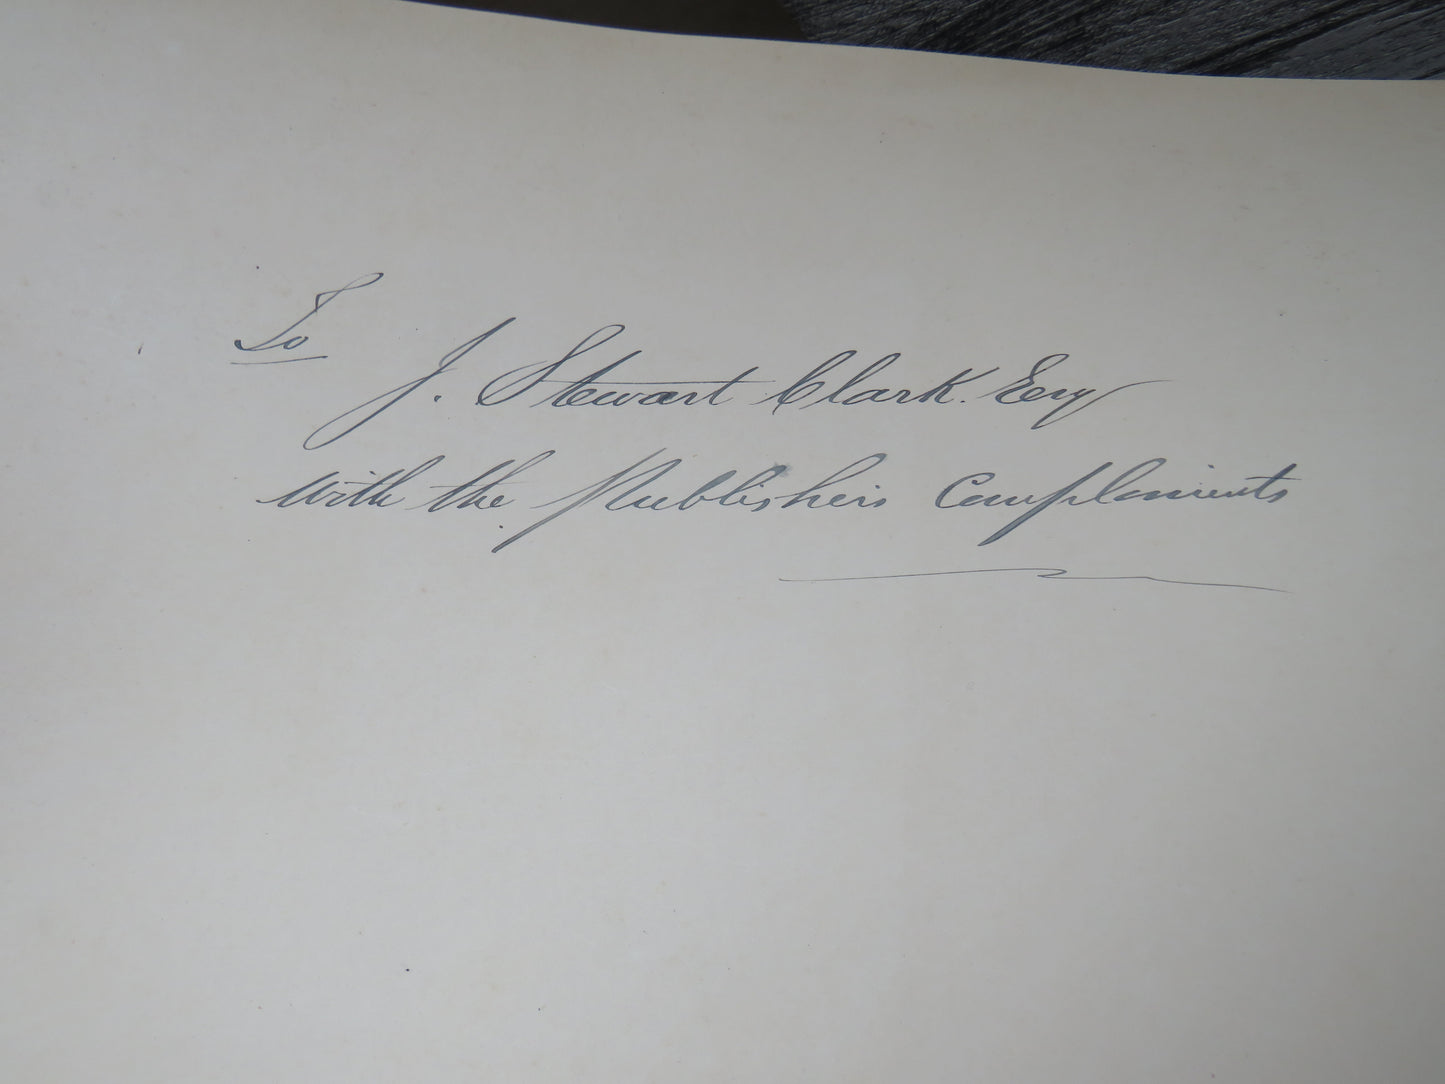 To
J. Stewart Clark. Esq
with the Publishers Compliments